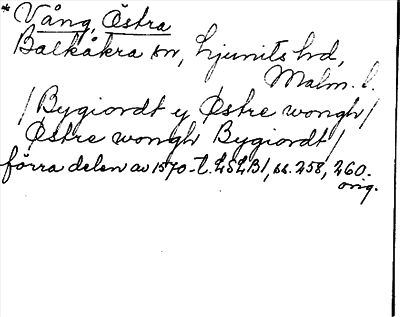 * Vång, Östra
Balkåkra sn, Ljunits hd,
Malm. l.
/Bygiordt y Østre wongh/
Østre wongh Bygiordt/
förra delen av 1570-t. LSLB1, ss. 258, 260.
orig.